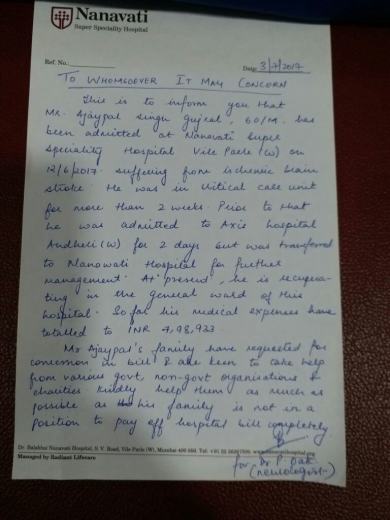 Nanavati
Super Speciality Hospital
Ref. No.
Date: 3/7/2017
TO WHOMSOEVER IT MAY CONCERN
This is to inform you that
Mr. Ajaypal Singh Gujral, 60/M. has
been admitted at Nanavati Super
Speciality Hospital Vile Parle (W) on
12/6/2017 suffering from ischemic brain
stroke. He was in critical care unit
for more than 2 weeks. Prior to that
he was admitted to Axis hospital
Andheri (W) for 2 days but was transferred
to Nanavati Hospital for further
management. At present, he is recupera-
ting in the general ward of this
hospital. So far his medical expenses have
totalled to INR 7,98,933
Mr Ajaypal's family have requested for
concession in bill & are keen to take help
from various govt, non-govt organisations &
charities kindly help them as much as
possible as his family is not in a
position to pay off hospital bill completely.
Dr. Balabhai Nanavati Hospital, S. V. Road, Vile Parle (W), Mumbai 400 056. Tel. +91 22 www.nanavatihospital.org
Managed by Radiant Lifecare
for Dr P. Oak
(neurologist)